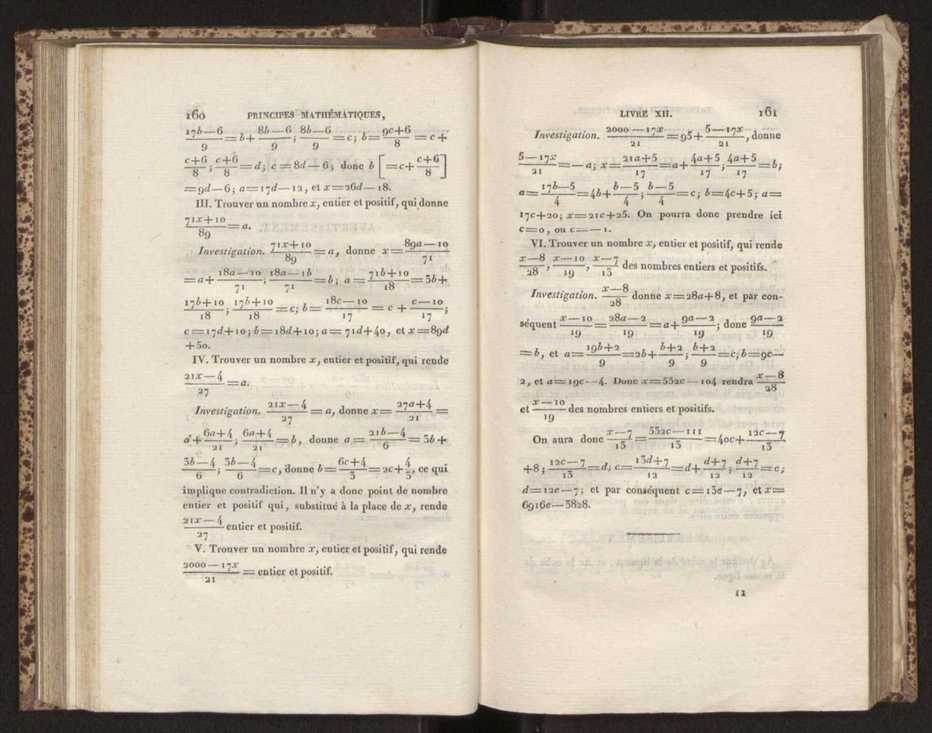 160 PRINCIPES MATHÉMATIQUES,
(17b—6)/9 = b + (8b—6)/9; (8b—6)/9 = c; b = (9c+6)/8 = c +
(c+6)/8; (c+6)/8 = d; c = 8d — 6; donc b [= c + (c+6)/8]
= 9d — 6; a = 17d — 12, et x = 26d — 18.
III. Trouver un nombre x, entier et positif, qui donne
(71x+10)/89 = a.
Investigation. (71x+10)/89 = a, donne x = (89a—10)/71
= a + (18a—10)/71; (18a—10)/71 = b; a = (71b+10)/18 = 3b +
(17b+10)/18; (17b+10)/18 = c; b = (18c—10)/17 = c + (c—10)/17;
c = 17d+10; b = 18d+10; a = 71d+40, et x = 89d
+ 50.
IV. Trouver un nombre x, entier et positif, qui rende
(21x—4)/27 = a.
Investigation. (21x—4)/27 = a, donne x = (27a+4)/21 =
a + (6a+4)/21; (6a+4)/21 = b, donne a = (21b—4)/6 = 3b +
(3b—4)/6; (3b—4)/6 = c, donne b = (6c+4)/3 = 2c + 4/3, ce qui
implique contradiction. Il n'y a donc point de nombre
entier et positif qui, substitué à la place de x, rende
(21x—4)/27 entier et positif.
V. Trouver un nombre x, entier et positif, qui rende
(2000—17x)/21 = entier et positif.
LIVRE XII. 161
Investigation. (2000—17x)/21 = 95 + (5—17x)/21, donne
(5—17x)/21 = — a; x = (21a+5)/17 = a + (4a+5)/17; (4a+5)/17 = b;
a = (17b—5)/4 = 4b + (b—5)/4; (b—5)/4 = c; b = 4c+5; a =
17c+20; x = 21c+25. On pourra donc prendre ici
c = 0, ou c = — 1.
VI. Trouver un nombre x, entier et positif, qui rende
(x—8)/28, (x—10)/19, (x—7)/15 des nombres entiers et positifs.
Investigation. (x—8)/28 donne x = 28a+8, et par con-
séquent (x—10)/19 = (28a—2)/19 = a + (9a—2)/19; donc (9a—2)/19
= b, et a = (19b+2)/9 = 2b + (b+2)/9; (b+2)/9 = c; b = 9c—
2, et a = 19c—4. Donc x = 532c — 104 rendra (x—8)/28
et (x—10)/19 des nombres entiers et positifs.
On aura donc (x—7)/13 = (532c—111)/13 = 40c + (12c—7)/13
+ 8; (12c—7)/13 = d; c = (13d+7)/12 = d + (d+7)/12; (d+7)/12 = e;
d = 12e—7; et par conséquent c = 13e—7, et x =
6916e—3828.
12